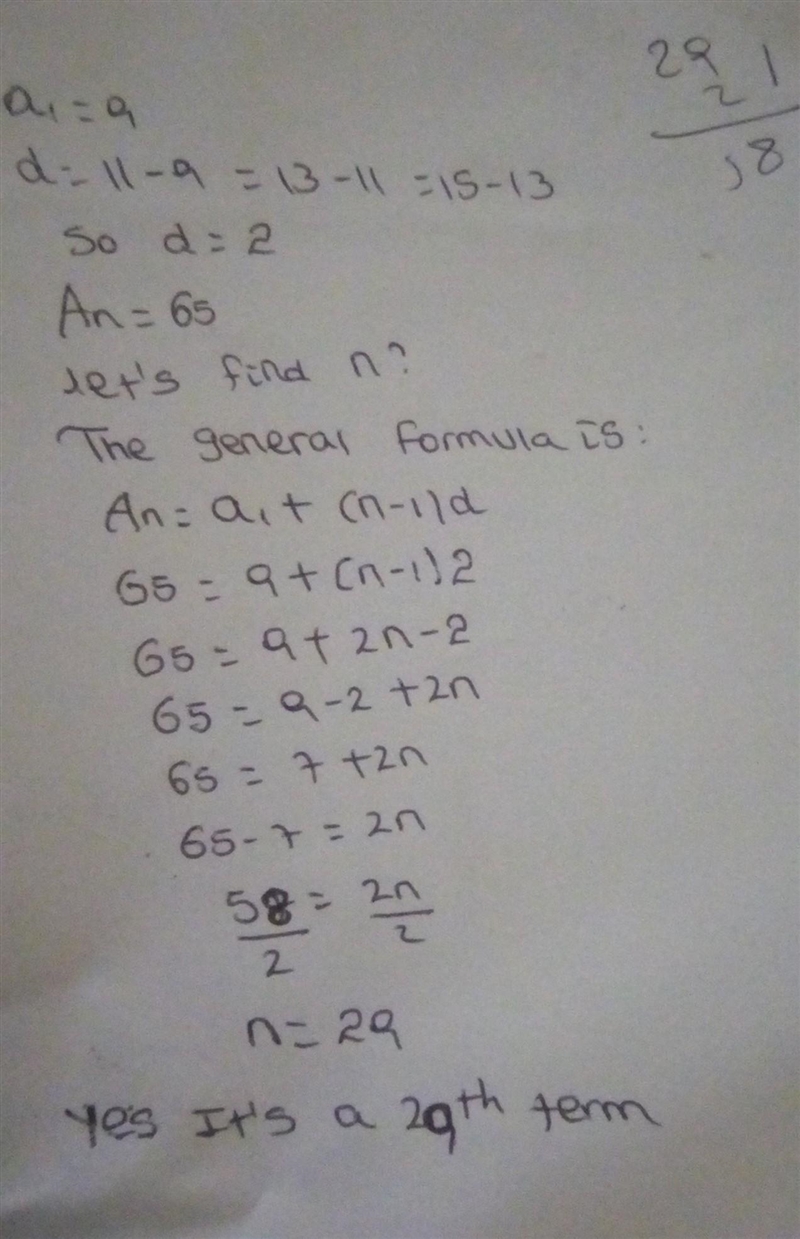 29 1
2
58
a₁ = 9
d = 11 - 9 = 13 - 11 = 15 - 13
So d = 2
An = 65
let's find n?
The general formula is:
An = a₁ + (n-1)d
65 = 9 + (n-1)2
65 = 9 + 2n - 2
65 = 9 - 2 + 2n
65 = 7 + 2n
65 - 7 = 2n
58/2 = 2n/2
n = 29
Yes It's a 29th term